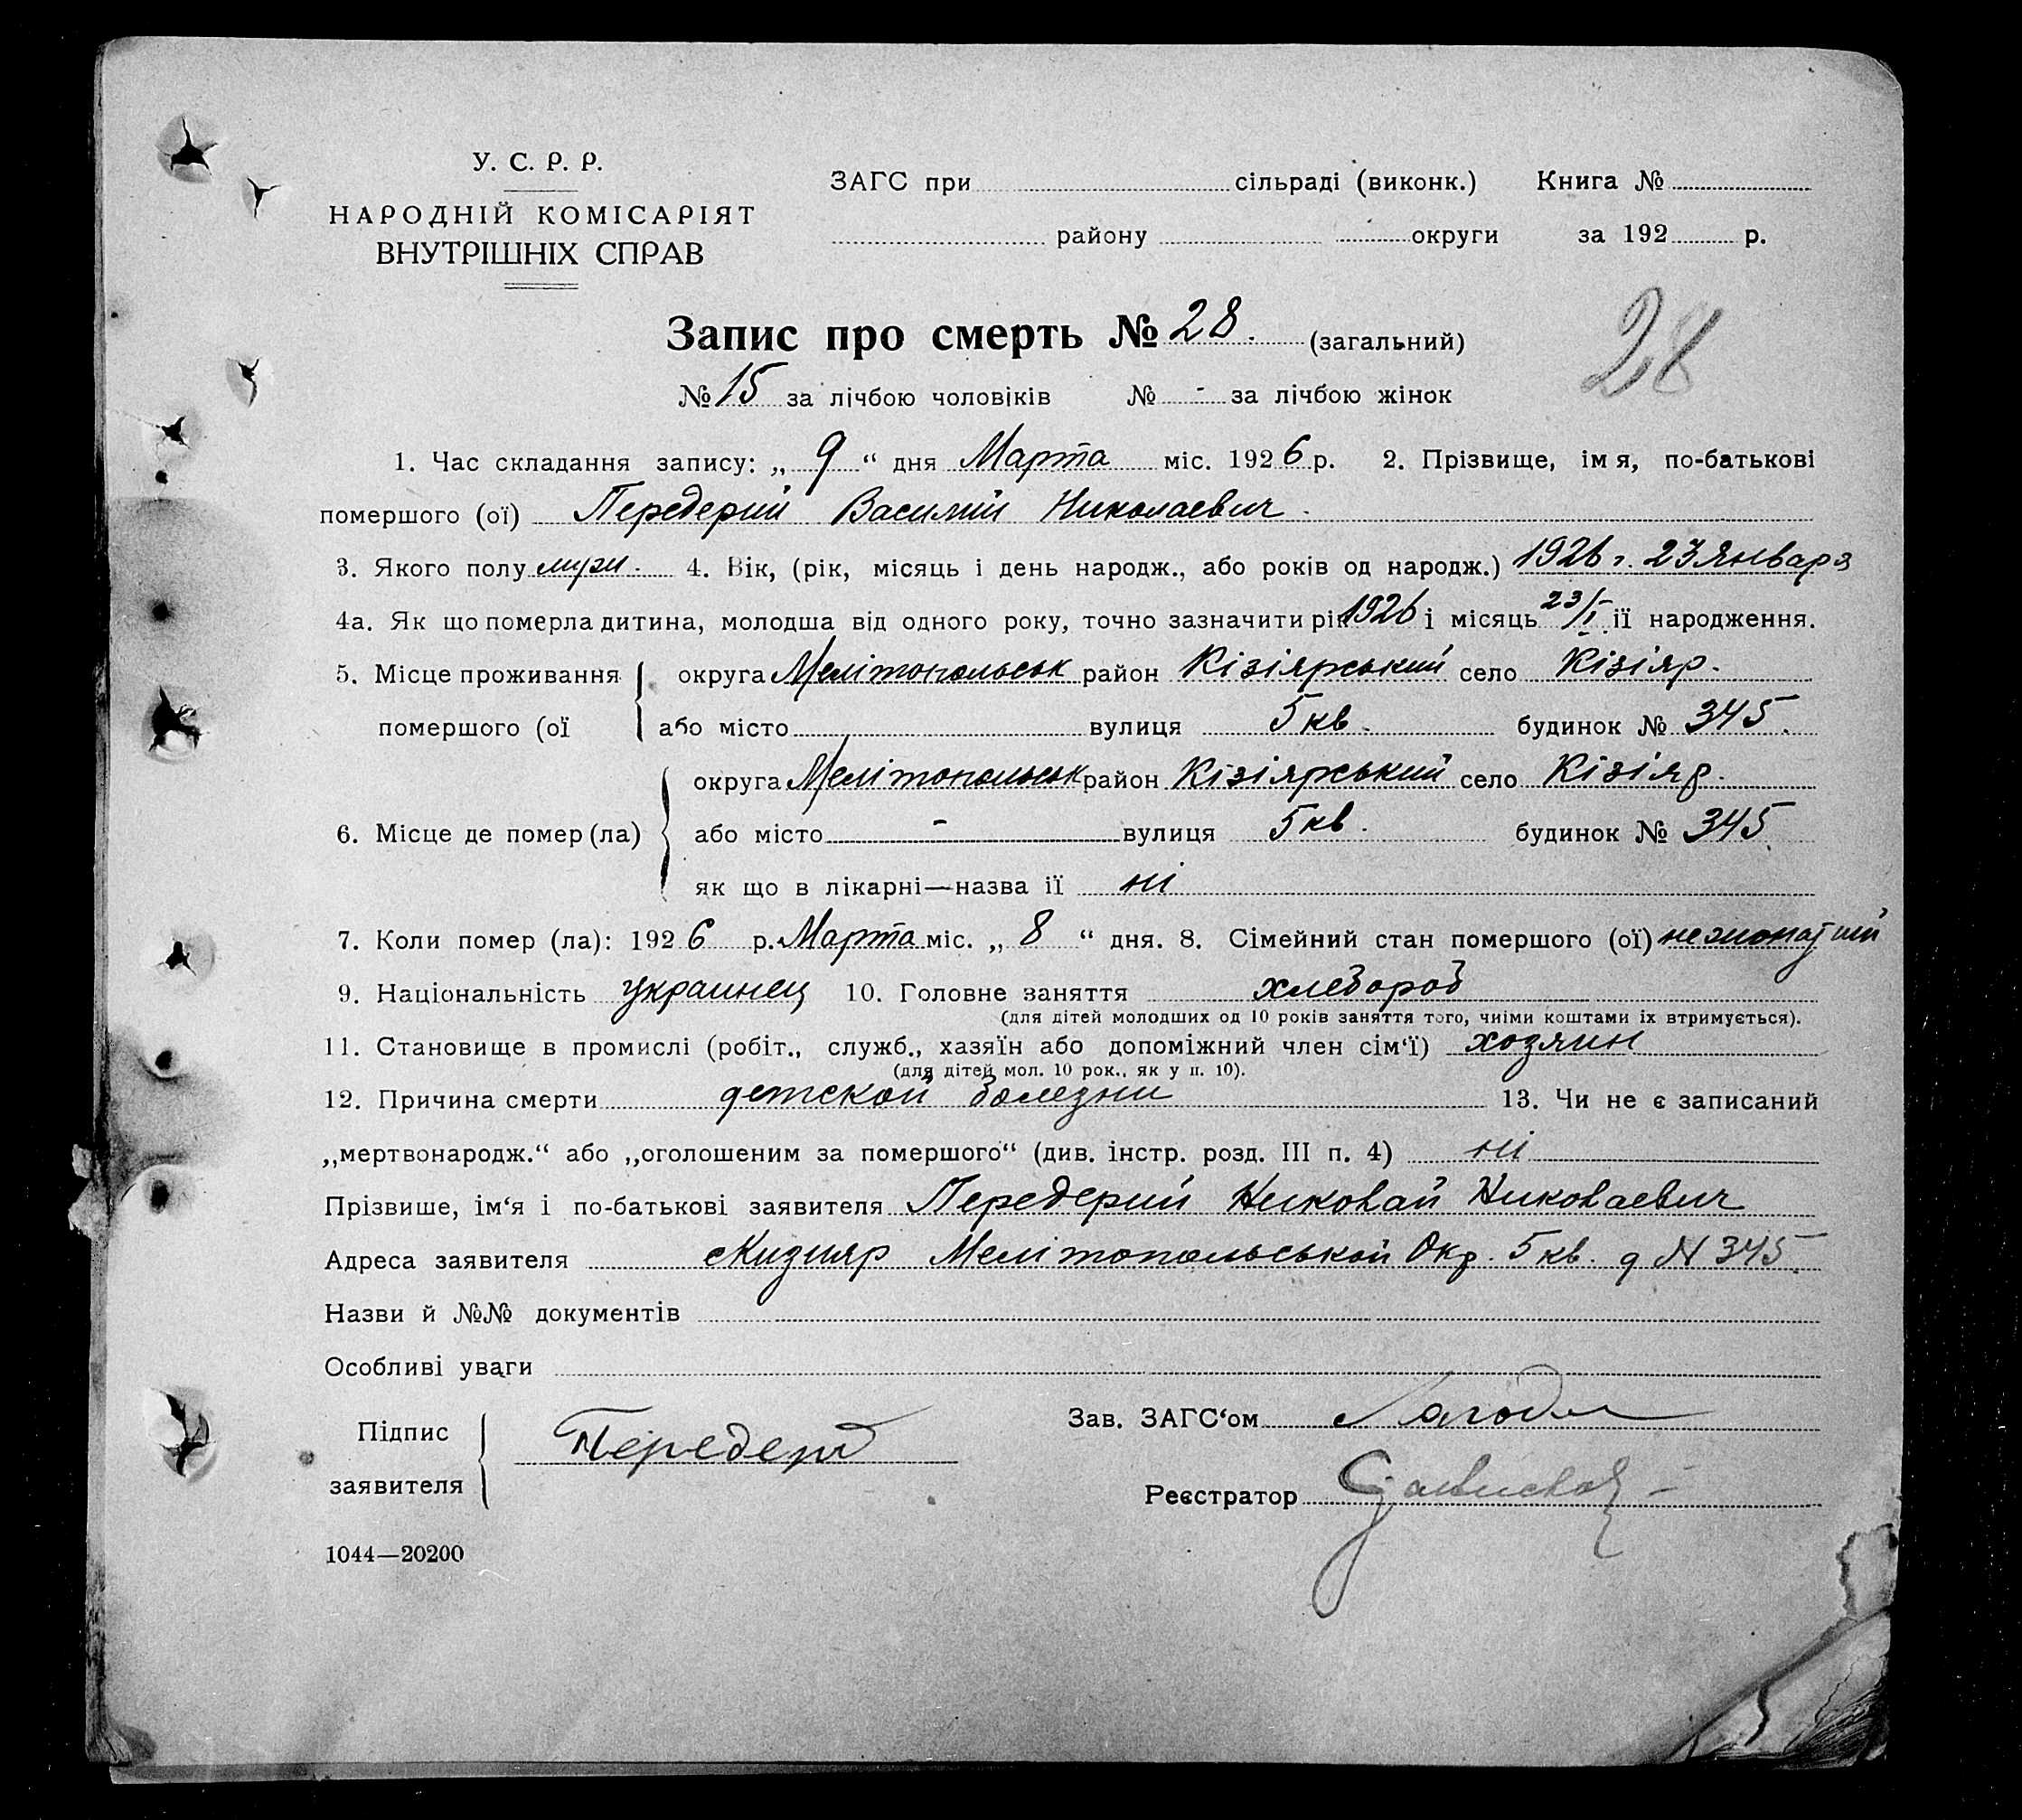 У. С. Р. Р.
НАРОДНІЙ КОМІСАРІЯТ
ВНУТРІШНІХ СПРАВ
ЗАГС при сільраді (виконк.) Книга №
району округи за 192 р.
Запис про смерть № 28. (загальний)
28
№ 15 за лічбою чоловіків № - за лічбою жінок
1. Час складання запису: „ 9 “ дня Марта міс. 1926 р. 2. Прізвище, імя, по-батькові
помершого (ої) Передерий Василий Николаевич.
3. Якого полу муж. 4. Вік, (рік, місяць і день народж., або років од народж.) 1926 г. 23 Января
4а. Як що померла дитина, молодша від одного року, точно зазначити рік 1926 і місяць 23/I її народження.
5. Місце проживання округа Мелітопольськ район Кізіярський село Кізіяр.
помершого (ої або місто вулиця 5 кв. будинок № 345.
округа Мелітопольськ район Кізіярський село Кізіяр.
6. Місце де помер (ла) або місто - вулиця 5 кв. будинок № 345.
як що в лікарні—назва її ні
7. Коли помер (ла): 1926 р. Марта міс. „ 8 “ дня. 8. Сімейний стан помершого (ої)
9. Національність украинец 10. Головне заняття хлебороб
(для дітей молодших од 10 років заняття того, чиїми коштами їх втримується).
11. Становище в промислі (робіт., служб., хазяїн або допоміжний член сім‘ї) хозяин
(для дітей мол. 10 рок., як у п. 10).
12. Причина смерти детской болезни 13. Чи не є записаний
„мертвонародж.“ або „оголошеним за помершого“ (див. інстр. розд. III п. 4) ні
Прізвише, ім‘я і по-батькові заявителя Передерий Николай Николаевич
Адреса заявителя с Кизияр Мелітопольськой Окр. 5 кв. д N 345.
Назви й №№ документів
Особливі уваги
Підпис
заявителя Передерий
Зав. ЗАГС‘ом
Реєстратор
1044—20200